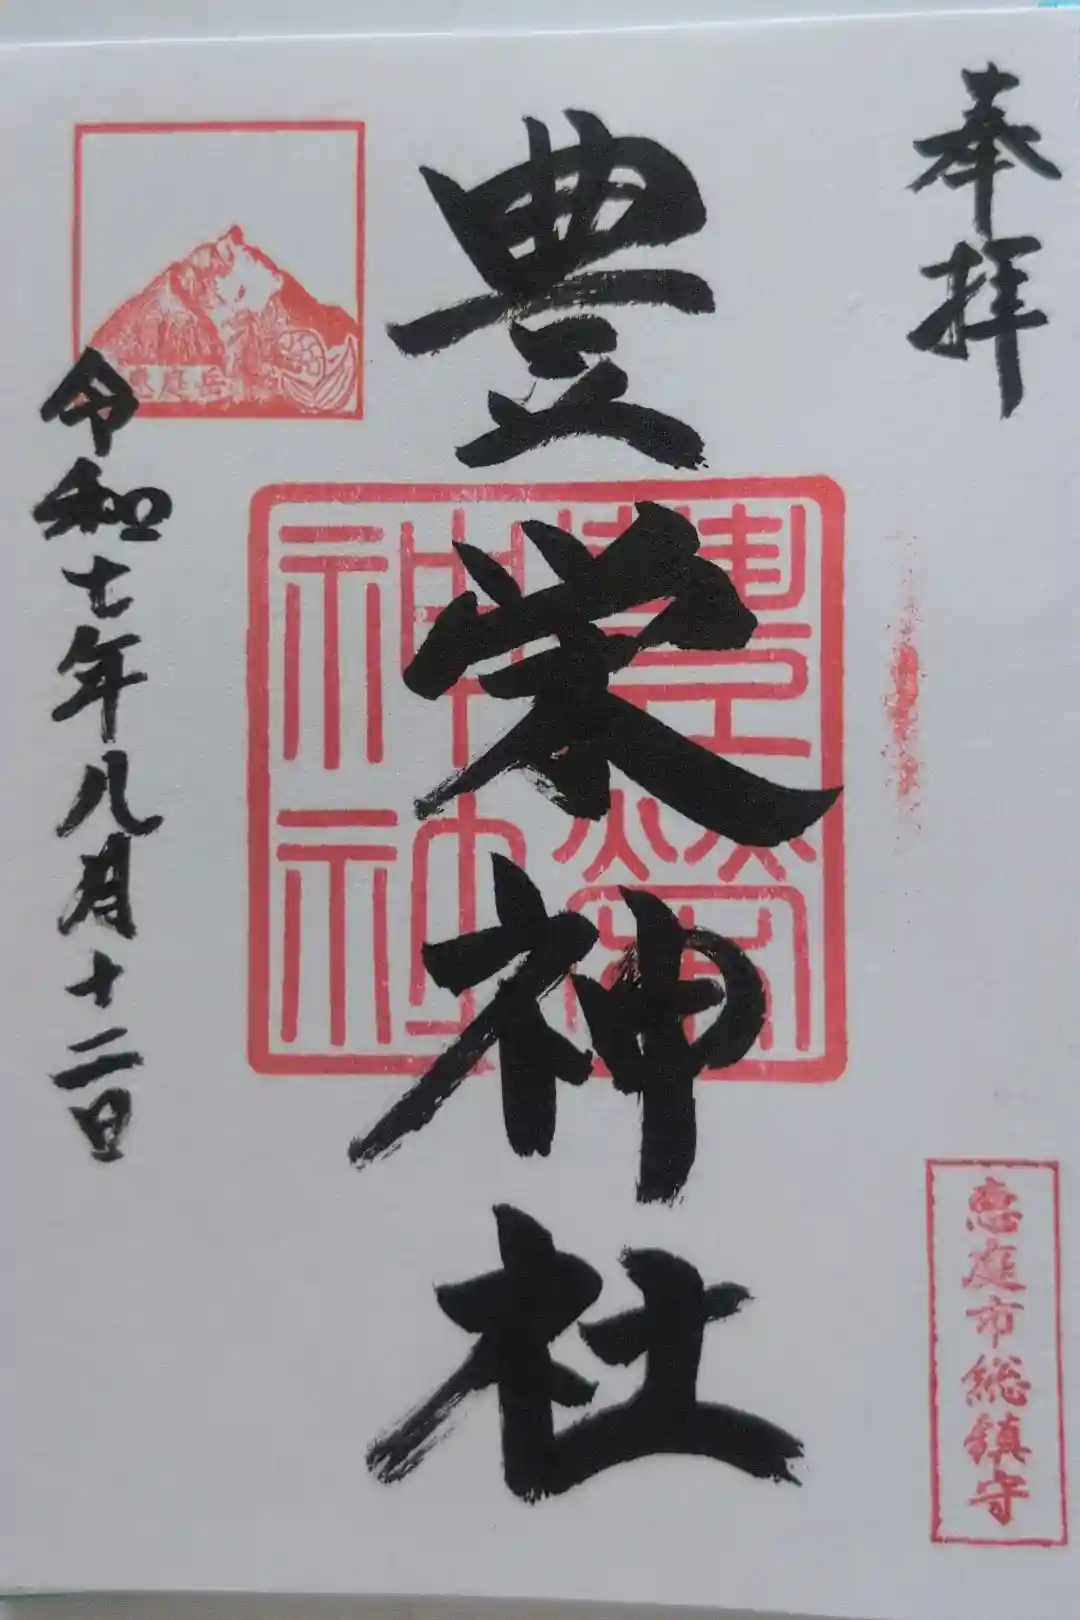 奉拝
恵庭市総鎮守
豊栄神社
豊栄
神社
恵庭岳
令和七年八月十二日